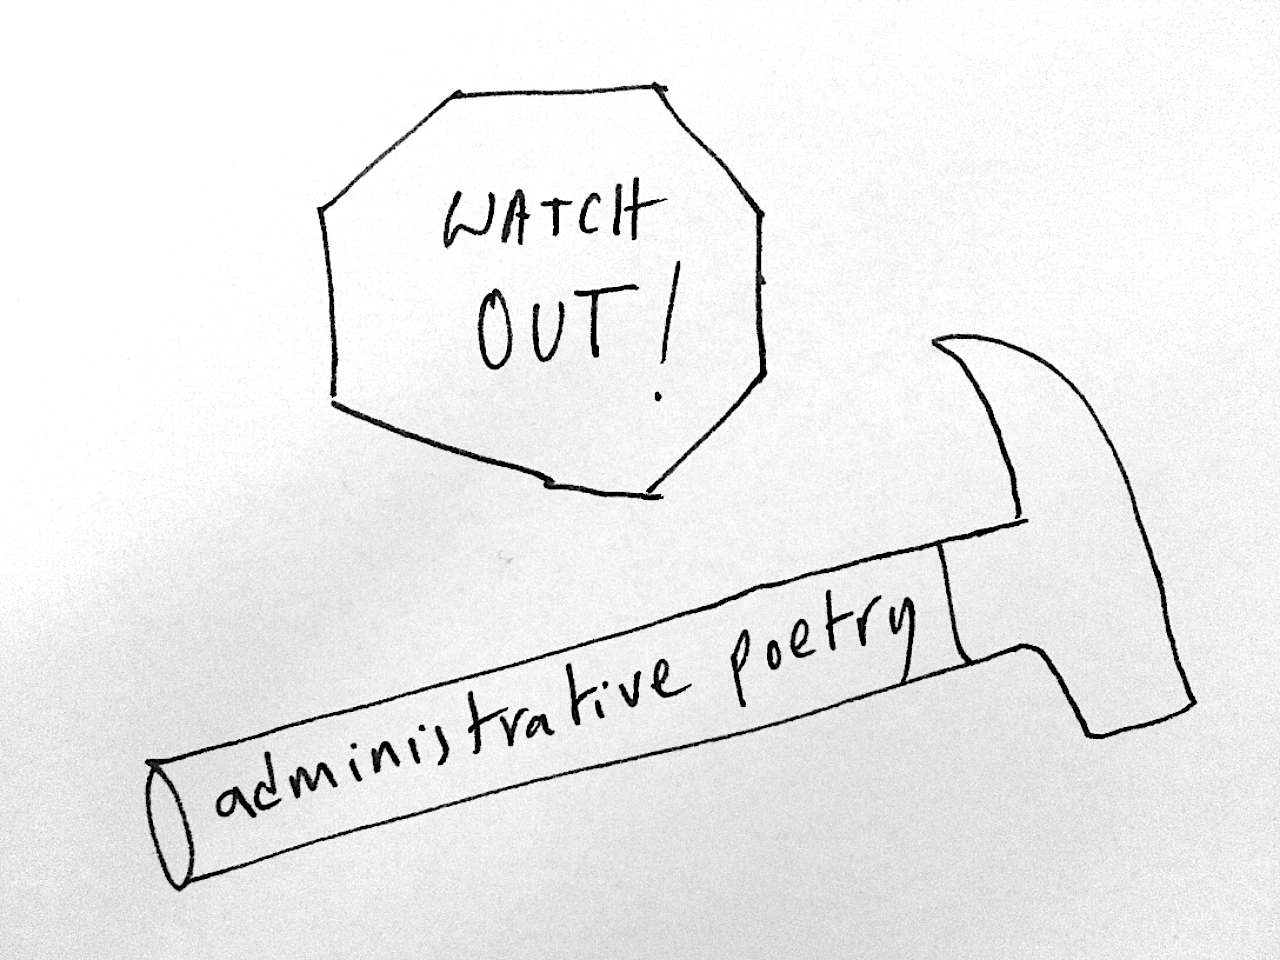 WATCH
OUT!
administrative poetry